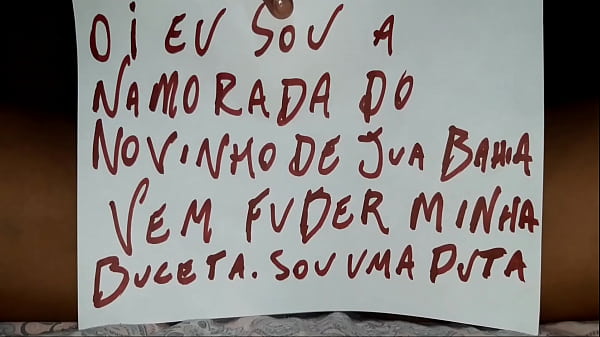 OI EU SOU A
NAMORADA DO
NOVINHO DE JUA BAHIA
VEM FUDER MINHA
BUCETA. SOU UMA PUTA